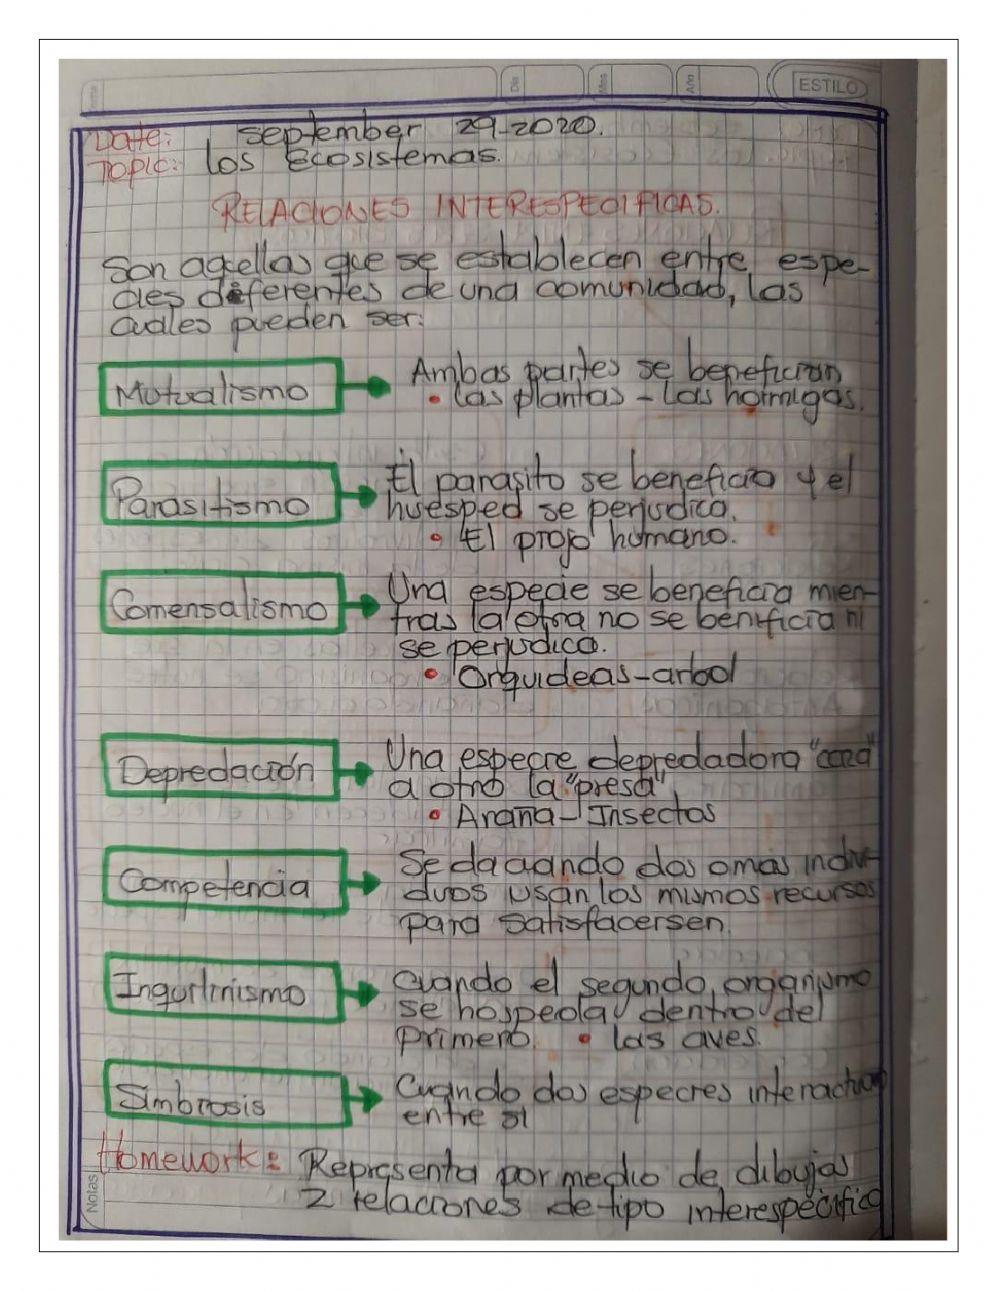 Día
Mes
Año
ESTILO
Date: september 29-2020.
Topic: los Ecosistemas.
RELACIONES INTERESPECIFICAS.
Son aquellas que se establecen entre espe-
cies diferentes de una comunidad, las
cuales pueden ser:
Mutualismo
Ambas partes se benefician
• Las plantas - Las hormigas.
Parasitismo
El parasito se beneficia y el
huesped se perjudica.
• El piojo humano.
Comensalismo
Una especie se beneficia mien-
tras la otra no se benificia ni
se perjudica.
• Orquideas-arbol
Depredación
Una especie depredadora "caza"
a otro la "presa"
• Araña - Insectos
Competencia
Se da cuando dos o mas indivi-
duos usan los mismos recursos
para satisfacersen.
Inquilinismo
Cuando el segundo organismo
se hospeda dentro del
primero. • las aves.
Simbiosis
Cuando dos especies interactuan
entre si
Homework: Representa por medio de dibujos
2 relaciones de tipo interespecifica
Notas